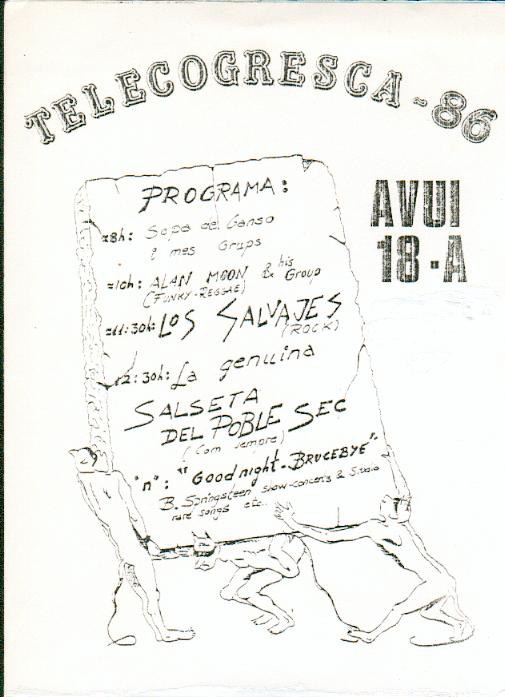 TELECOGRESCA-86
AVUI
18-A
PROGRAMA:
≈8h: Sopa de Ganso
i mes Grups
≈10h: ALAN MOON & his Group
(FUNKY-REGGAE)
≈11:30h: LOS SALVAJES
(ROCK)
12:30h: La genuina
SALSETA
DEL POBLE SEC
(Com sempre)
"n": "Goodnight-BRUCEBYE"
B. Springsteen show-concerts &
rare songs etc.